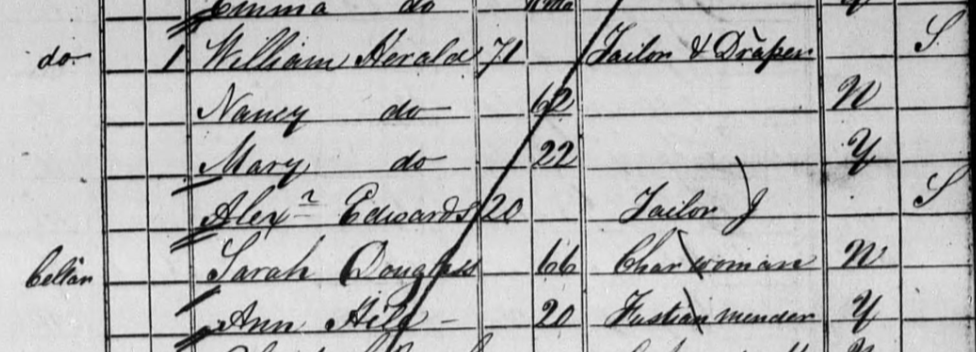 Emma do
do 1 William Herald 71 Tailor & Draper S
Nancy do 62 N
Mary do 22 Y
Alexr Edwards 20 Tailor J S
Cellar Sarah Douglass 66 Char woman N
Ann Hill 20 Fustian mender Y